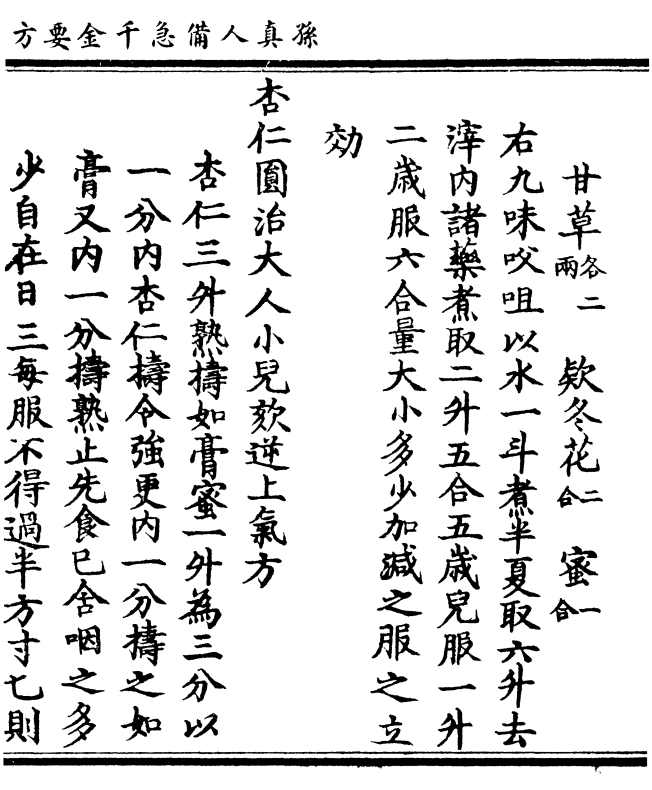 孫真人備急千金要方
甘草各二兩 欵冬花二合 蜜一合
右九味㕮咀以水一斗煮半夏取六升去
滓内諸藥煮取二升五合五歳兒服一升
二歳服六合量大小多少加減之服之立
効
杏仁圓治大人小兒欬逆上氣方
杏仁三升熟擣如膏蜜一升為三分以
一分内杏仁擣令強更内一分擣之如
膏又内一分擣熟止先食已含咽之多
少自在日三每服不得過半方寸匕則